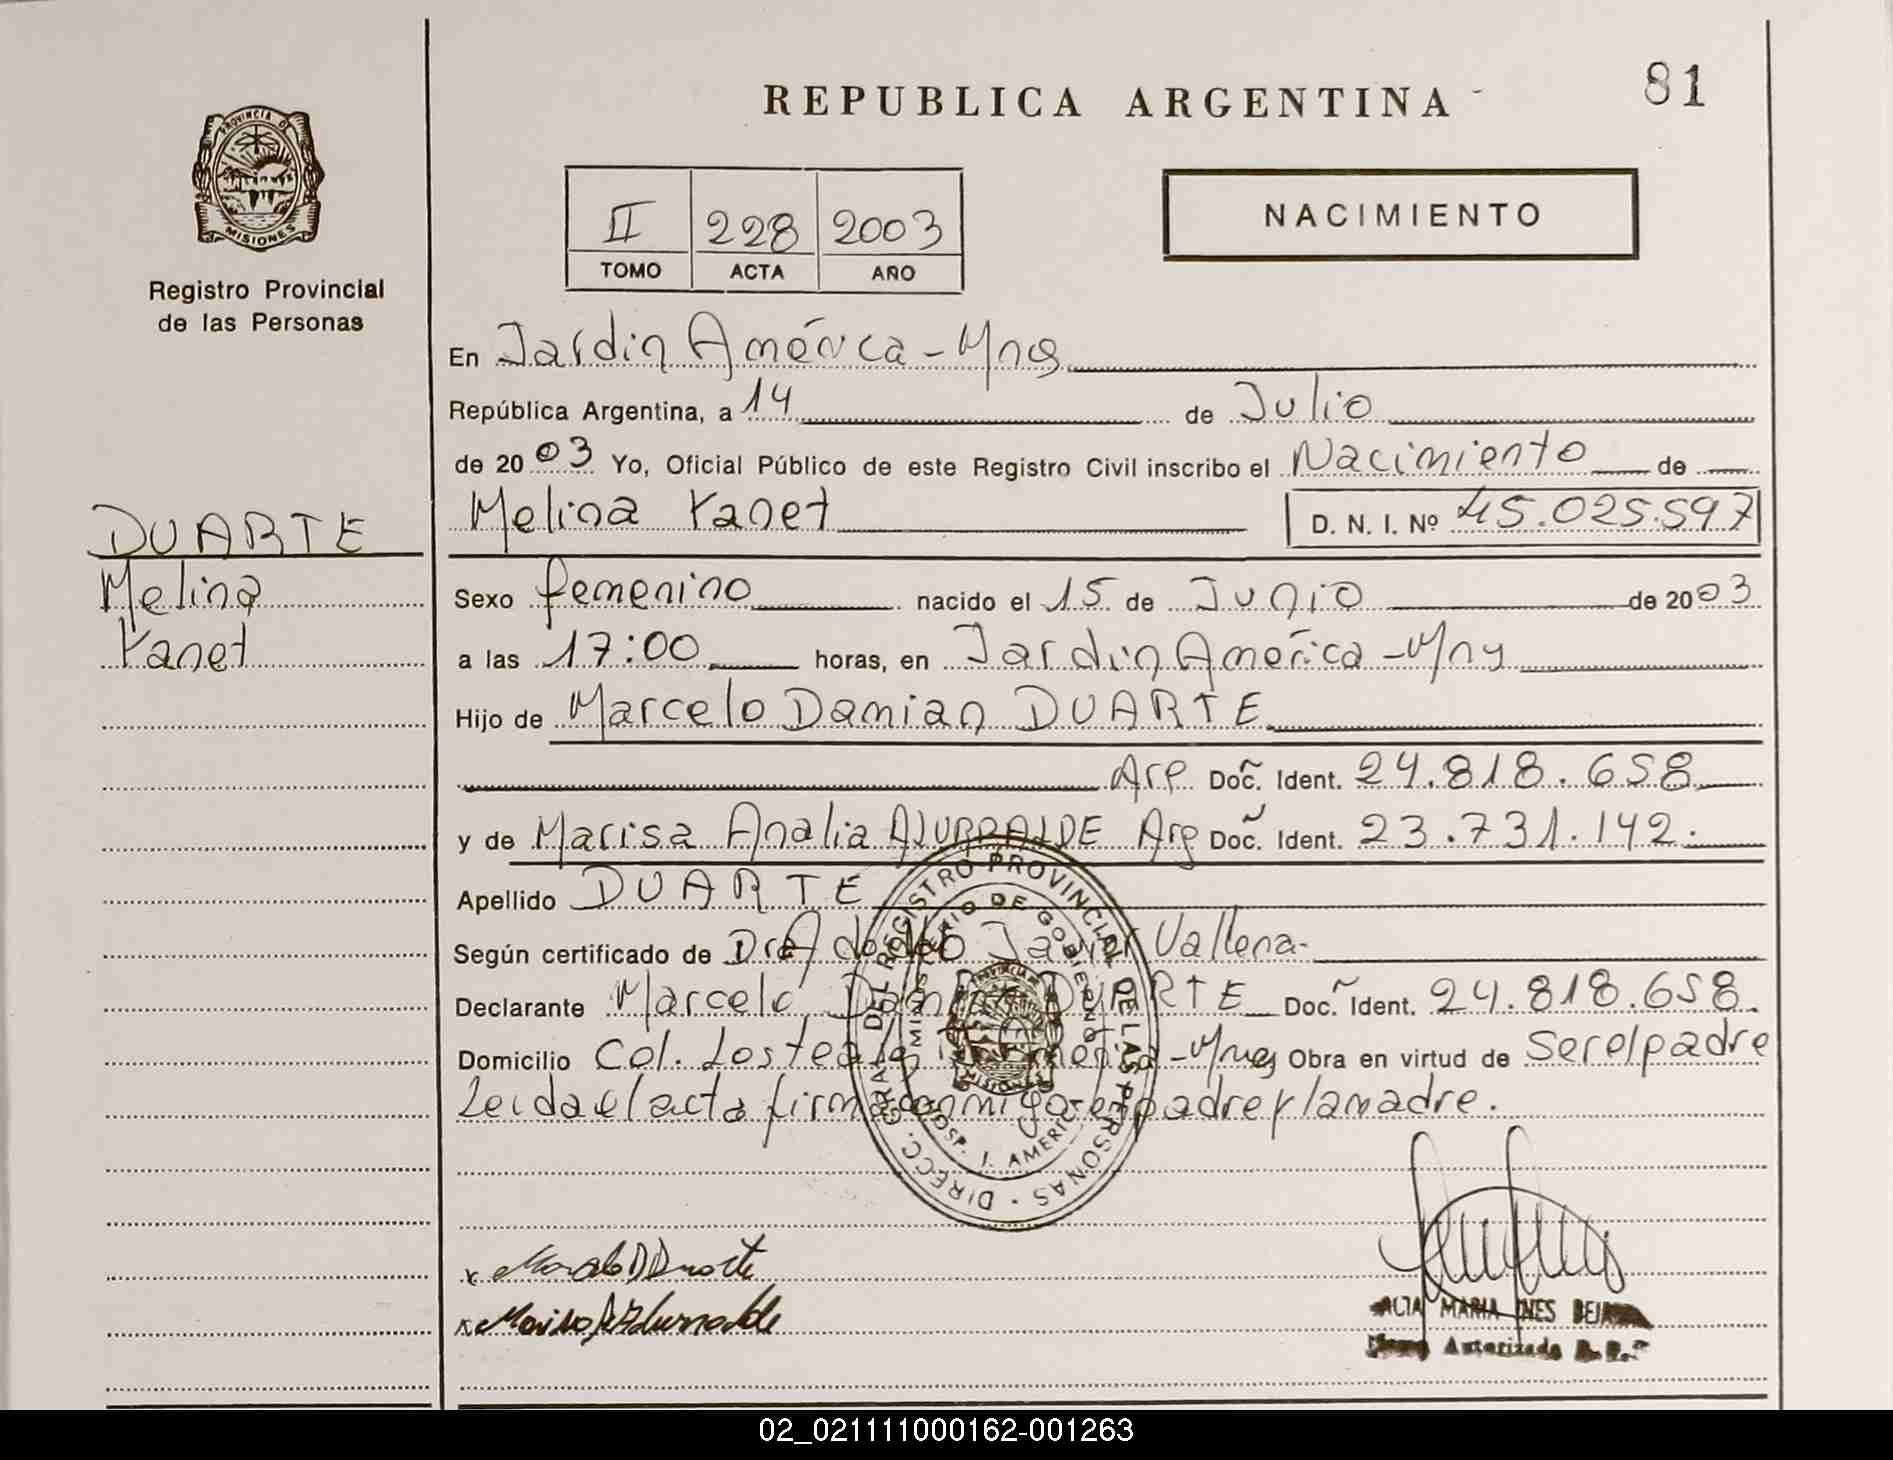 REPUBLICA ARGENTINA
81
PROVINCIA D
MISIONES
Registro Provincial
de las Personas
II 228 2003
TOMO ACTA AÑO
NACIMIENTO
En Jardin América - Mnes
República Argentina, a 14 de Julio
de 2003 Yo, Oficial Público de este Registro Civil inscribo el Nacimiento de
Melina Yanet D. N. I. Nº 45.025.597
DUARTE
Melina
Yanet
Sexo femenino nacido el 15 de Junio de 2003
a las 17:00 horas, en Jardin América - Mnes
Hijo de Marcelo Damian DUARTE
Arg Doc. Ident. 24.818.658
y de Marisa Analia Arg Doc. Ident. 23.731.142.
Apellido DUARTE
Según certificado de Javier Vallena
Declarante Marcelo Damian DUARTE Doc. Ident. 24.818.658.
Domicilio Col. Los Obra en virtud de Ser el padre
Leida el acta firma conmigo el padre y la madre.
DIRECC. GRAL. DEL REGISTRO PROVINCIAL DE LAS PERSONAS
DE GOBIERNO
HOSP. J. AMERICA
MISIONES
Marcelo D Duarte
MARIA INES
Autorizada
02_021111000162-001263